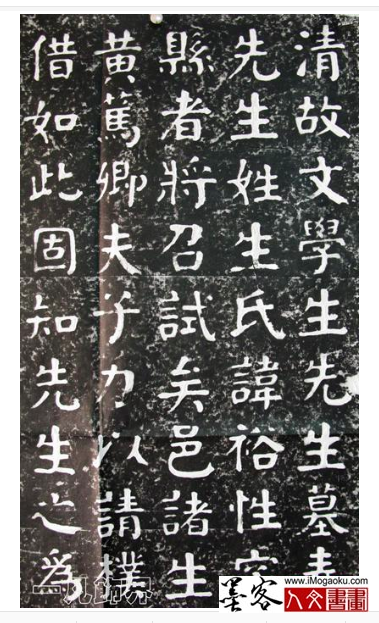 清故文學生先生墓
先生姓生氏諱裕性
縣者將召試矣邑諸生
黃篤卿夫子力以請樸
借如此固知先生之為
墨客
www.iMogaoku.com
人文書畫